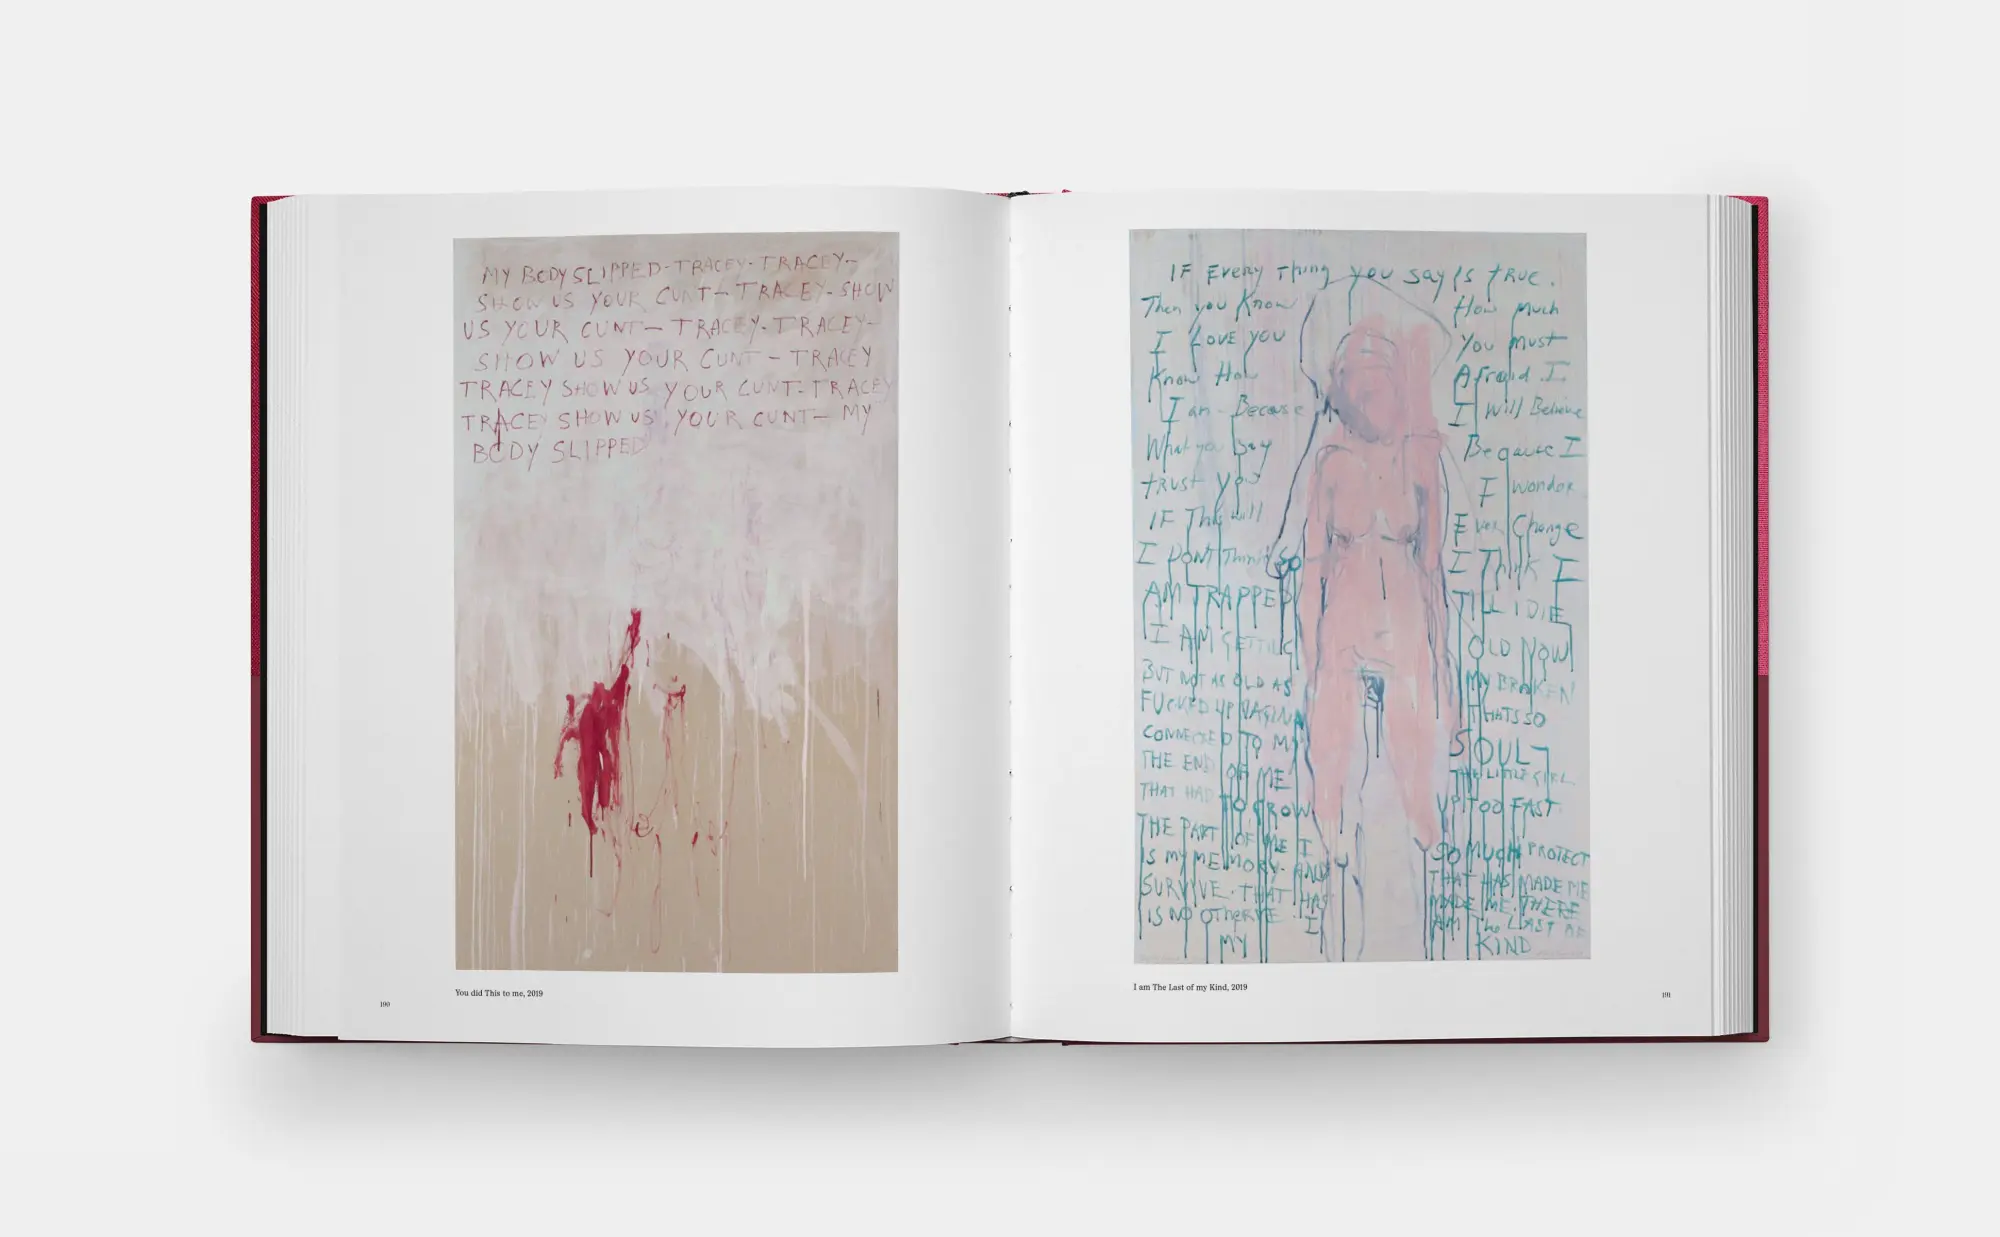 MY BODY SLIPPED-TRACEY-TRACEY-
SHOW US YOUR CUNT-TRACEY-SHOW
US YOUR CUNT-TRACEY-TRACEY-
SHOW US YOUR CUNT-TRACEY
TRACEY SHOW US YOUR CUNT-TRACEY
TRACEY SHOW US YOUR CUNT-MY
BODY SLIPPED
You did This to me, 2019
190
IF EVERY Thing you say Is TRUE.
Then you Know How Much
I LOVE you You Must
Know How Afraid I
I am-Because I Will Believe
What you say Because I
TRUST You I wonder
IF This will Ever Change
I DONT Think SO I Think I
AM TRAPPED TILL I DIE
I AM GETTING OLD NOW
BUT NOT AS OLD AS MY BROKEN
FUCKED UP VAGINA THATS SO
CONNECTED TO MY SOUL
THE END OF ME THE LITTLE GIRL
THAT HAD TO GROW UP TOO FAST
THE PART OF ME I SO MUCH PROTECT
IS MY MEMORY-AND THAT HAS MADE ME
SURVIVE. THAT HAS MADE ME. THERE
IS NO OTHER I AM The LAST OF
MY KIND
I am The Last of my Kind, 2019
191